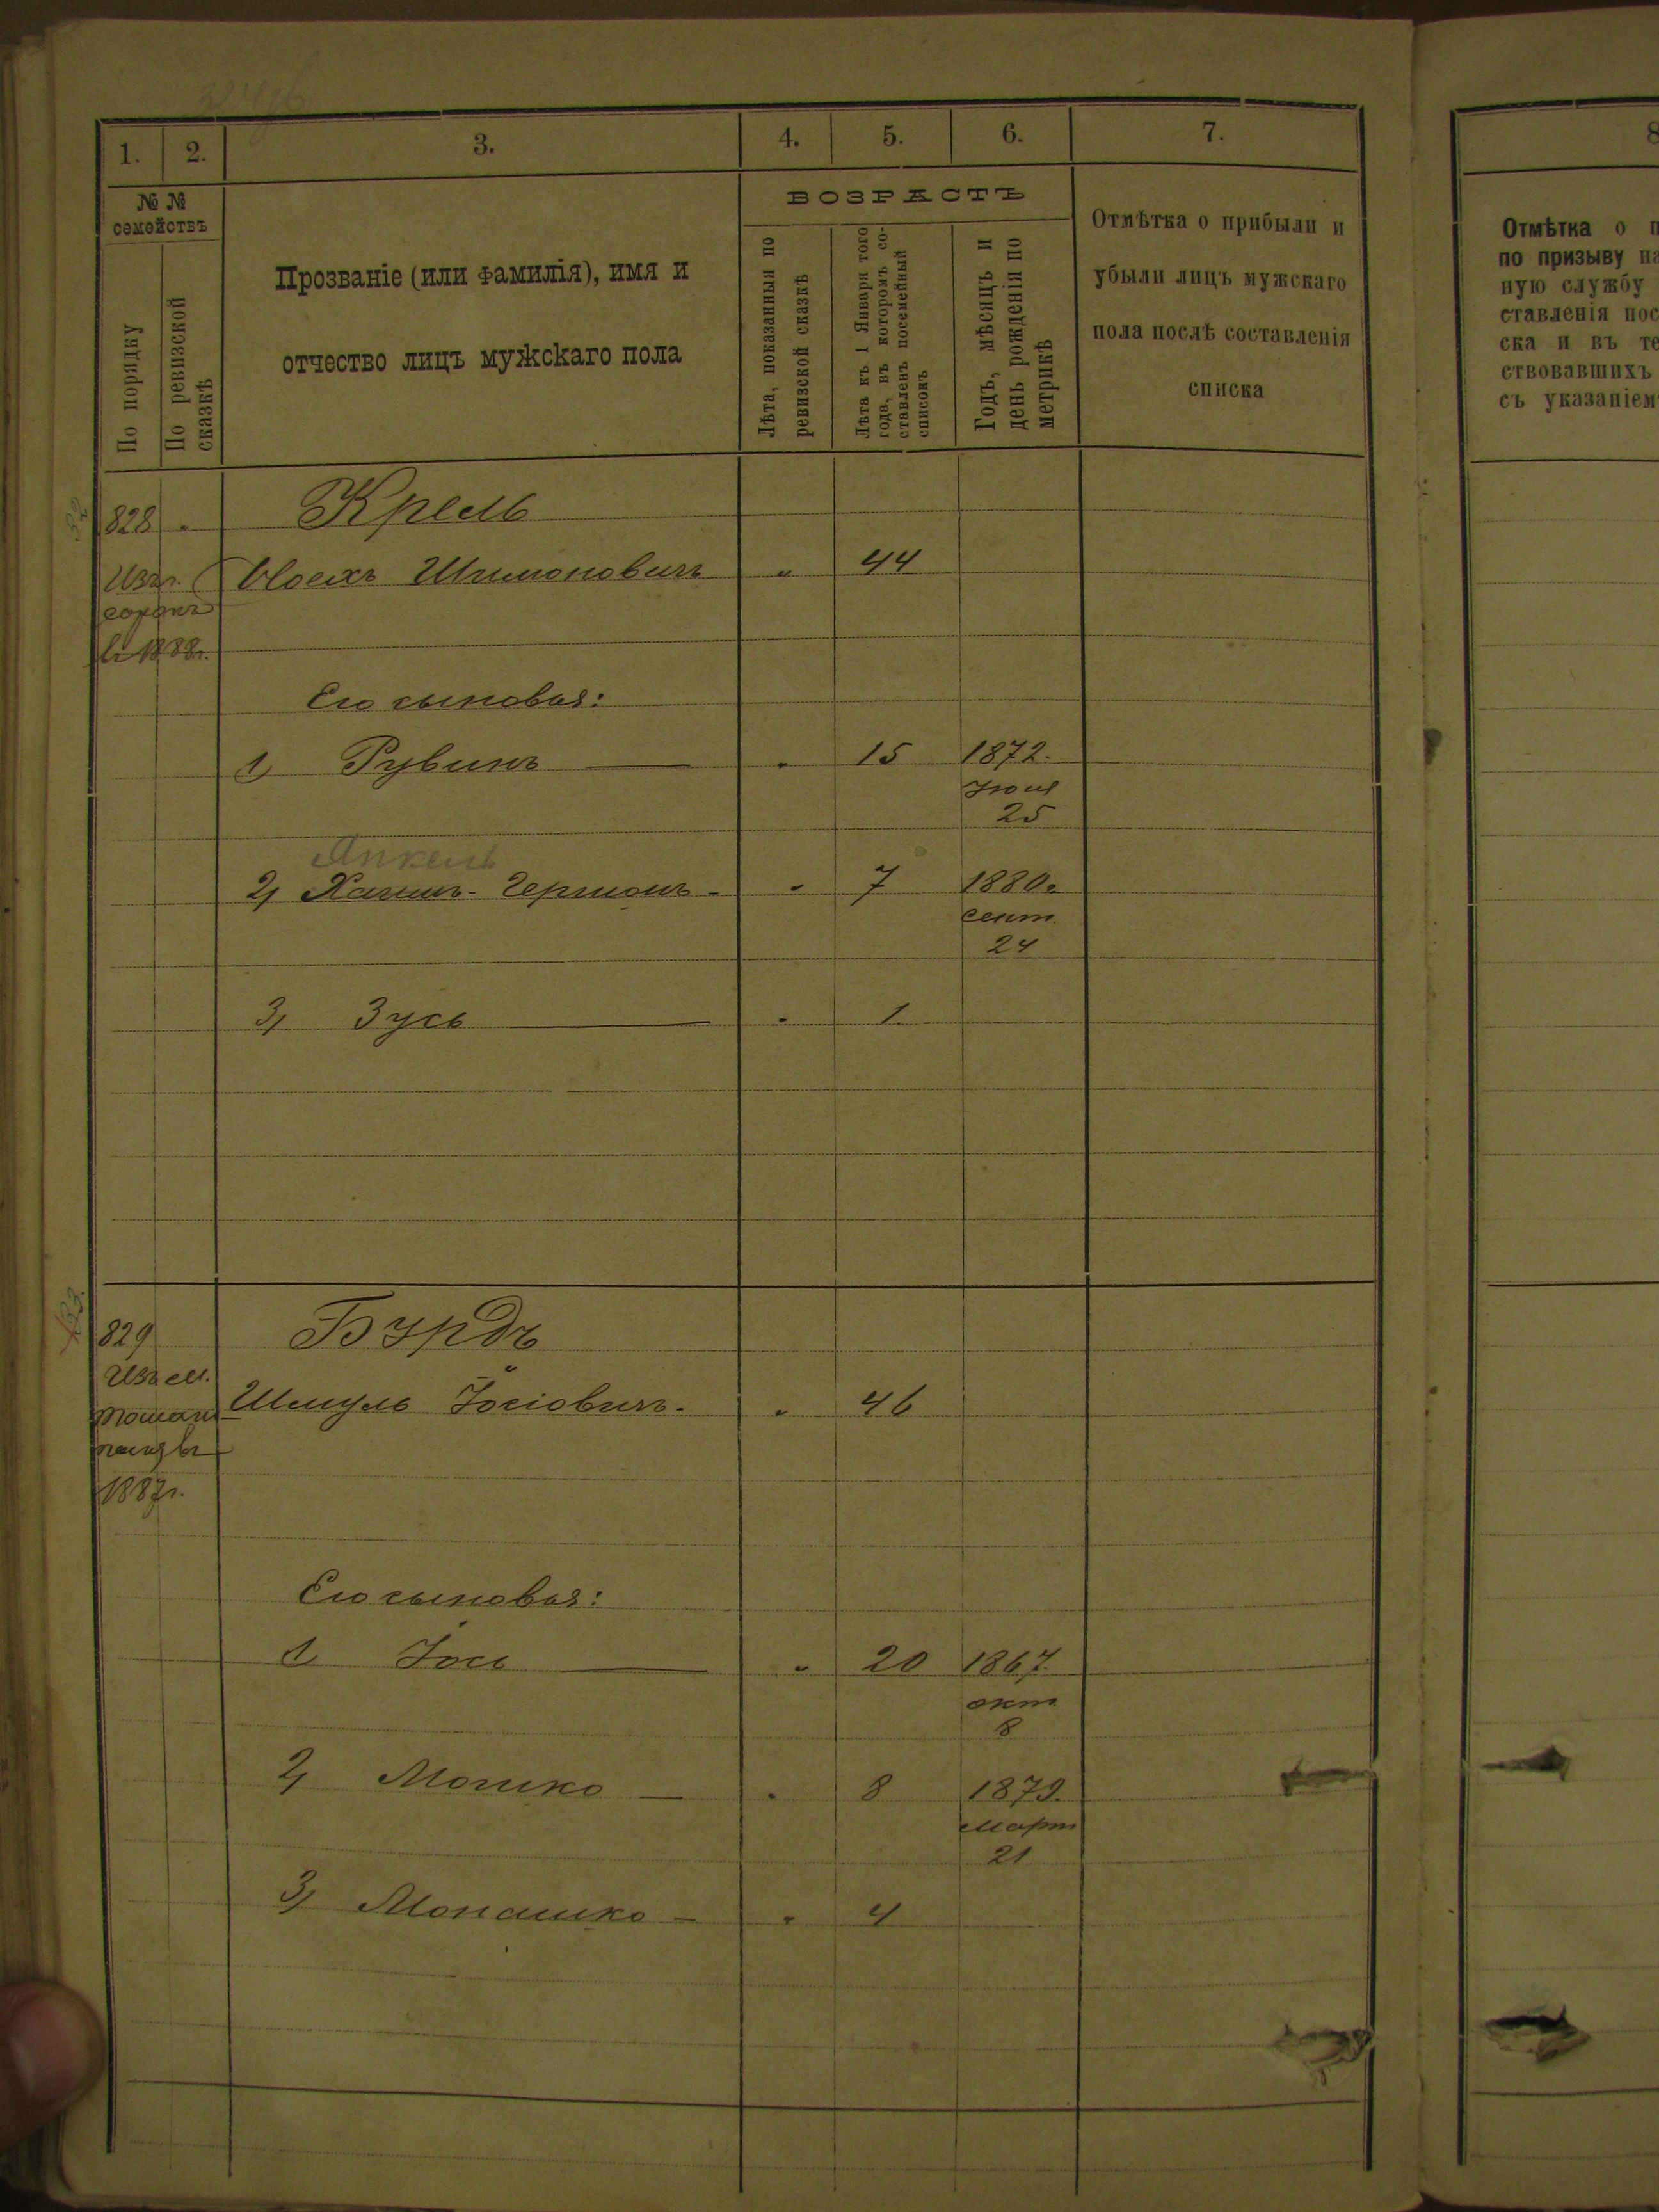 1.
2.
3.
4.
5.
6.
7.
8
№ №
семействъ
По порядку
По ревизской
сказкѣ
Прозваніе (или фамилія), имя и
отчество лицъ мужскаго пола
ВОЗРАСТЪ
Лѣта, показанныя по
ревизской сказкѣ
Лѣта къ 1 Января того
года, въ которомъ со-
ставленъ посемейный
списокъ
Годъ, мѣсяцъ и
день рожденія по
метрикѣ
Отмѣтка о прибыли и
убыли лицъ мужскаго
пола послѣ составленія
списка
Отмѣтка о п
по призыву на
ную службу
ставленія пос
ска и въ те
ствовавшихъ
съ указаніем
828 Крель
Изъ г. Шимоновичъ " 44
Сорокъ
въ 1888 г.
Его сыновья:
1) Рувинъ — " 15 1872.
Іюня
25
Янкель
2) Хаимъ-Гершонъ - " 7 1880.
сент.
24
3) Зусь — " 1.
33.
829 Бурдъ
Изъ м.
Шмуль Іосіовичъ. " 46
1887 г.
Его сыновья:
1) Іось — " 20 1867.
окт
8
2) Мошко — " 8 1879.
март
21
3) Монашко — " 4